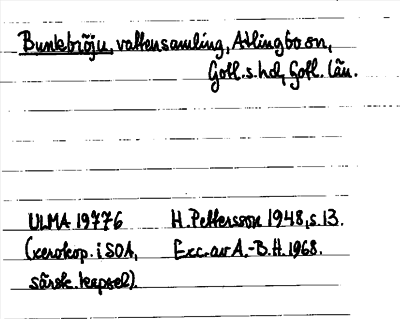 Bunkbröju, vattensamling, Atlingbo sn,
Gotl. s. hd, Gotl. län.
ULMA 19776 H. Pettersson 1948, s. 13.
(xerokop. i SOA, Exc. av A.-B. H. 1968.
särsk. kapsel).